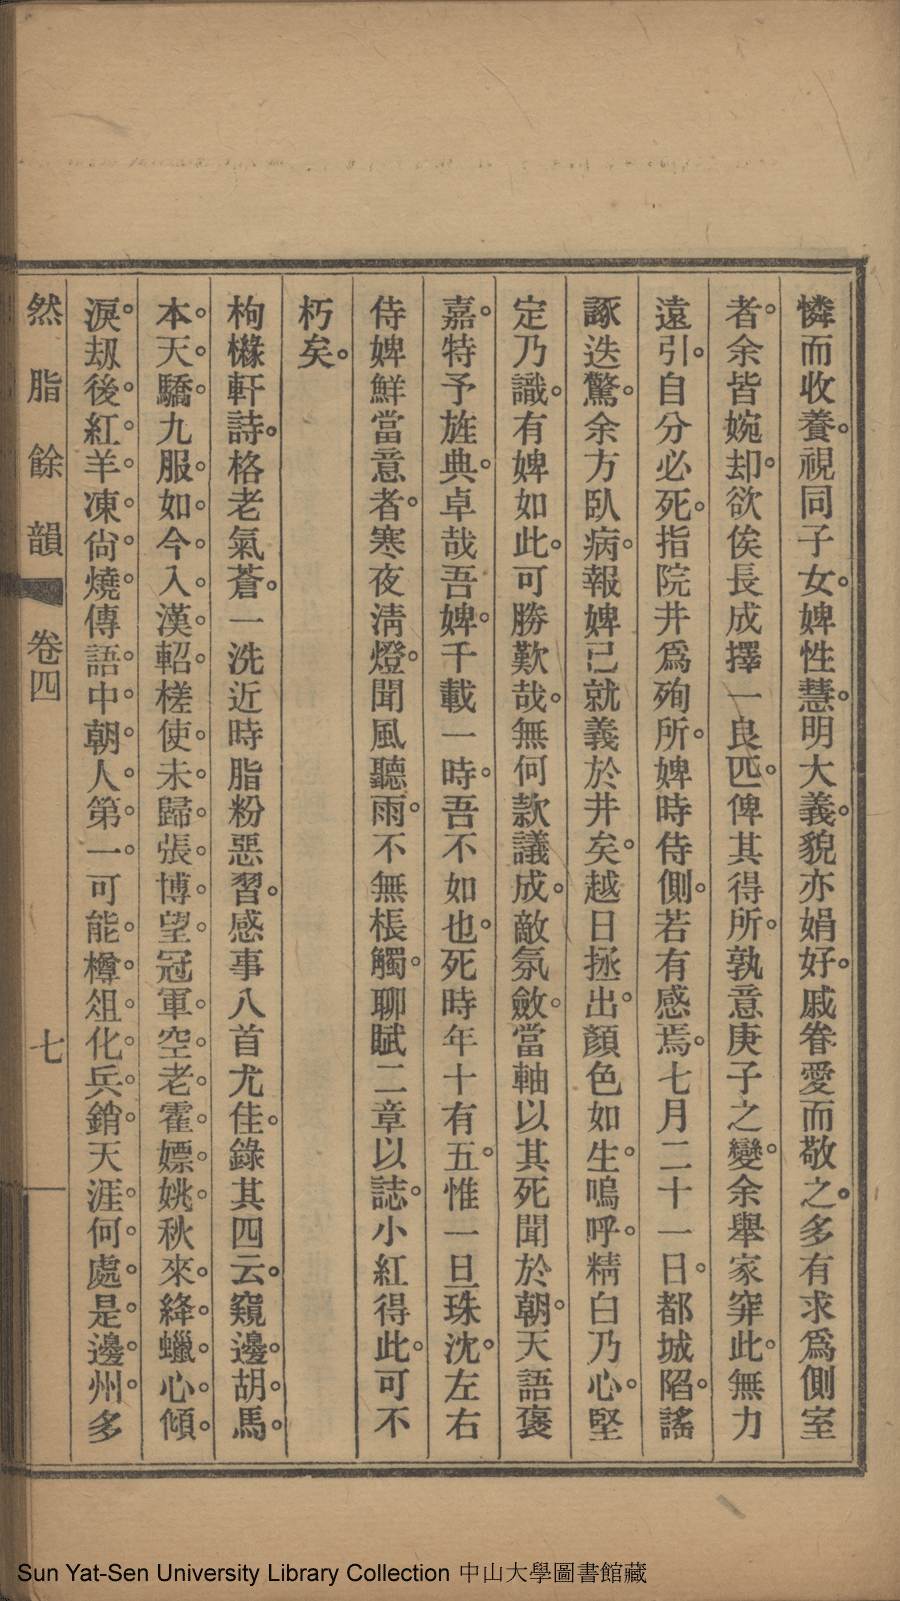 憐而收養。視同子女。婢性慧。明大義。貌亦娟好。戚眷愛而敬之。多有求爲側室
者。余皆婉却。欲俟長成擇一良匹。俾其得所。孰意庚子之變。余舉家穽此。無力
遠引。自分必死。指院井爲殉所。婢時侍側。若有感焉。七月二十一日。都城陷。謠
諑迭驚。余方臥病。報婢已就義於井矣。越日拯出。顏色如生。嗚呼。精白乃心。堅
定乃識。有婢如此。可勝歎哉。無何款議成。敵氛斂。當軸以其死聞於朝。天語褒
嘉。特予旌典。卓哉吾婢。千載一時。吾不如也。死時年十有五。惟一旦珠沈。左右
侍婢鮮當意者。寒夜淸燈。聞風聽雨。不無棖觸。聊賦二章以誌。小紅得此。可不
朽矣。
枸櫞軒詩。格老氣蒼。一洗近時脂粉惡習。感事八首尤佳。錄其四云。窺邊。胡。馬。
本。天。驕。九服。如。今。入。漢。軺。槎使。未。歸。張。博。望。冠軍。空。老。霍。嫖。姚。秋來。絳。蠟。心。傾。
淚。刼後。紅。羊。凍。尙。燒。傳語。中。朝。人。第。一。可能。樽。俎。化。兵。銷。天涯。何。處。是。邊。州。多
然脂餘韻 卷四 七
Sun Yat-Sen University Library Collection 中山大學圖書館藏